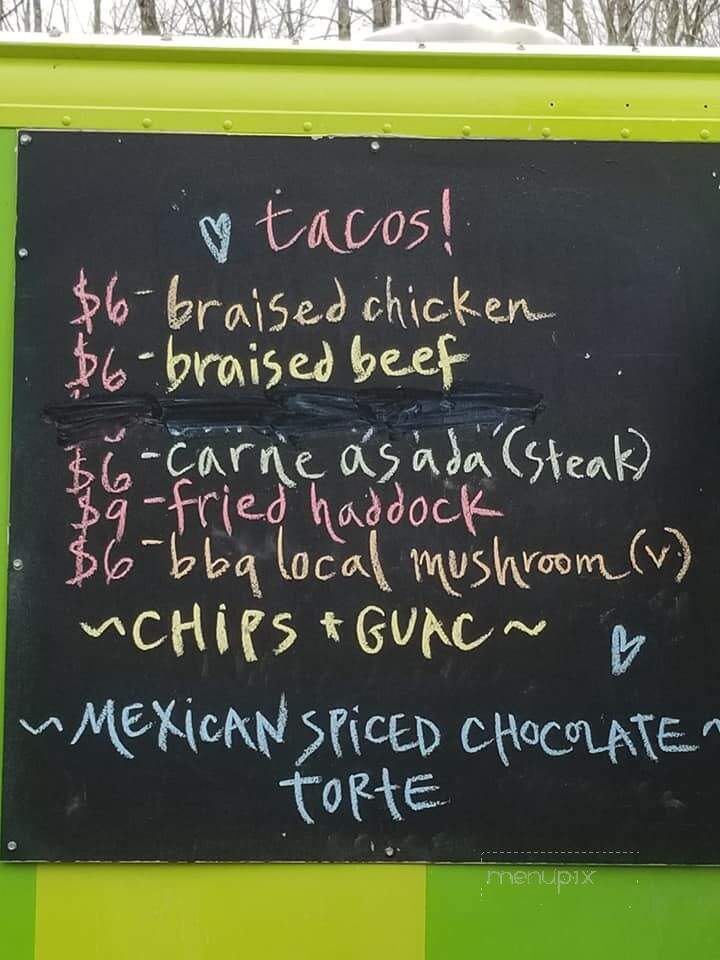 tacos!
$6-braised chicken
$6-braised beef
$6-carne asada (steak)
$9-fried haddock
$6-bbq local mushroom (v)
~CHiPS + GUAC~
~MEXiCAN SPiCED CHOCOLATE~
TORtE
menupix